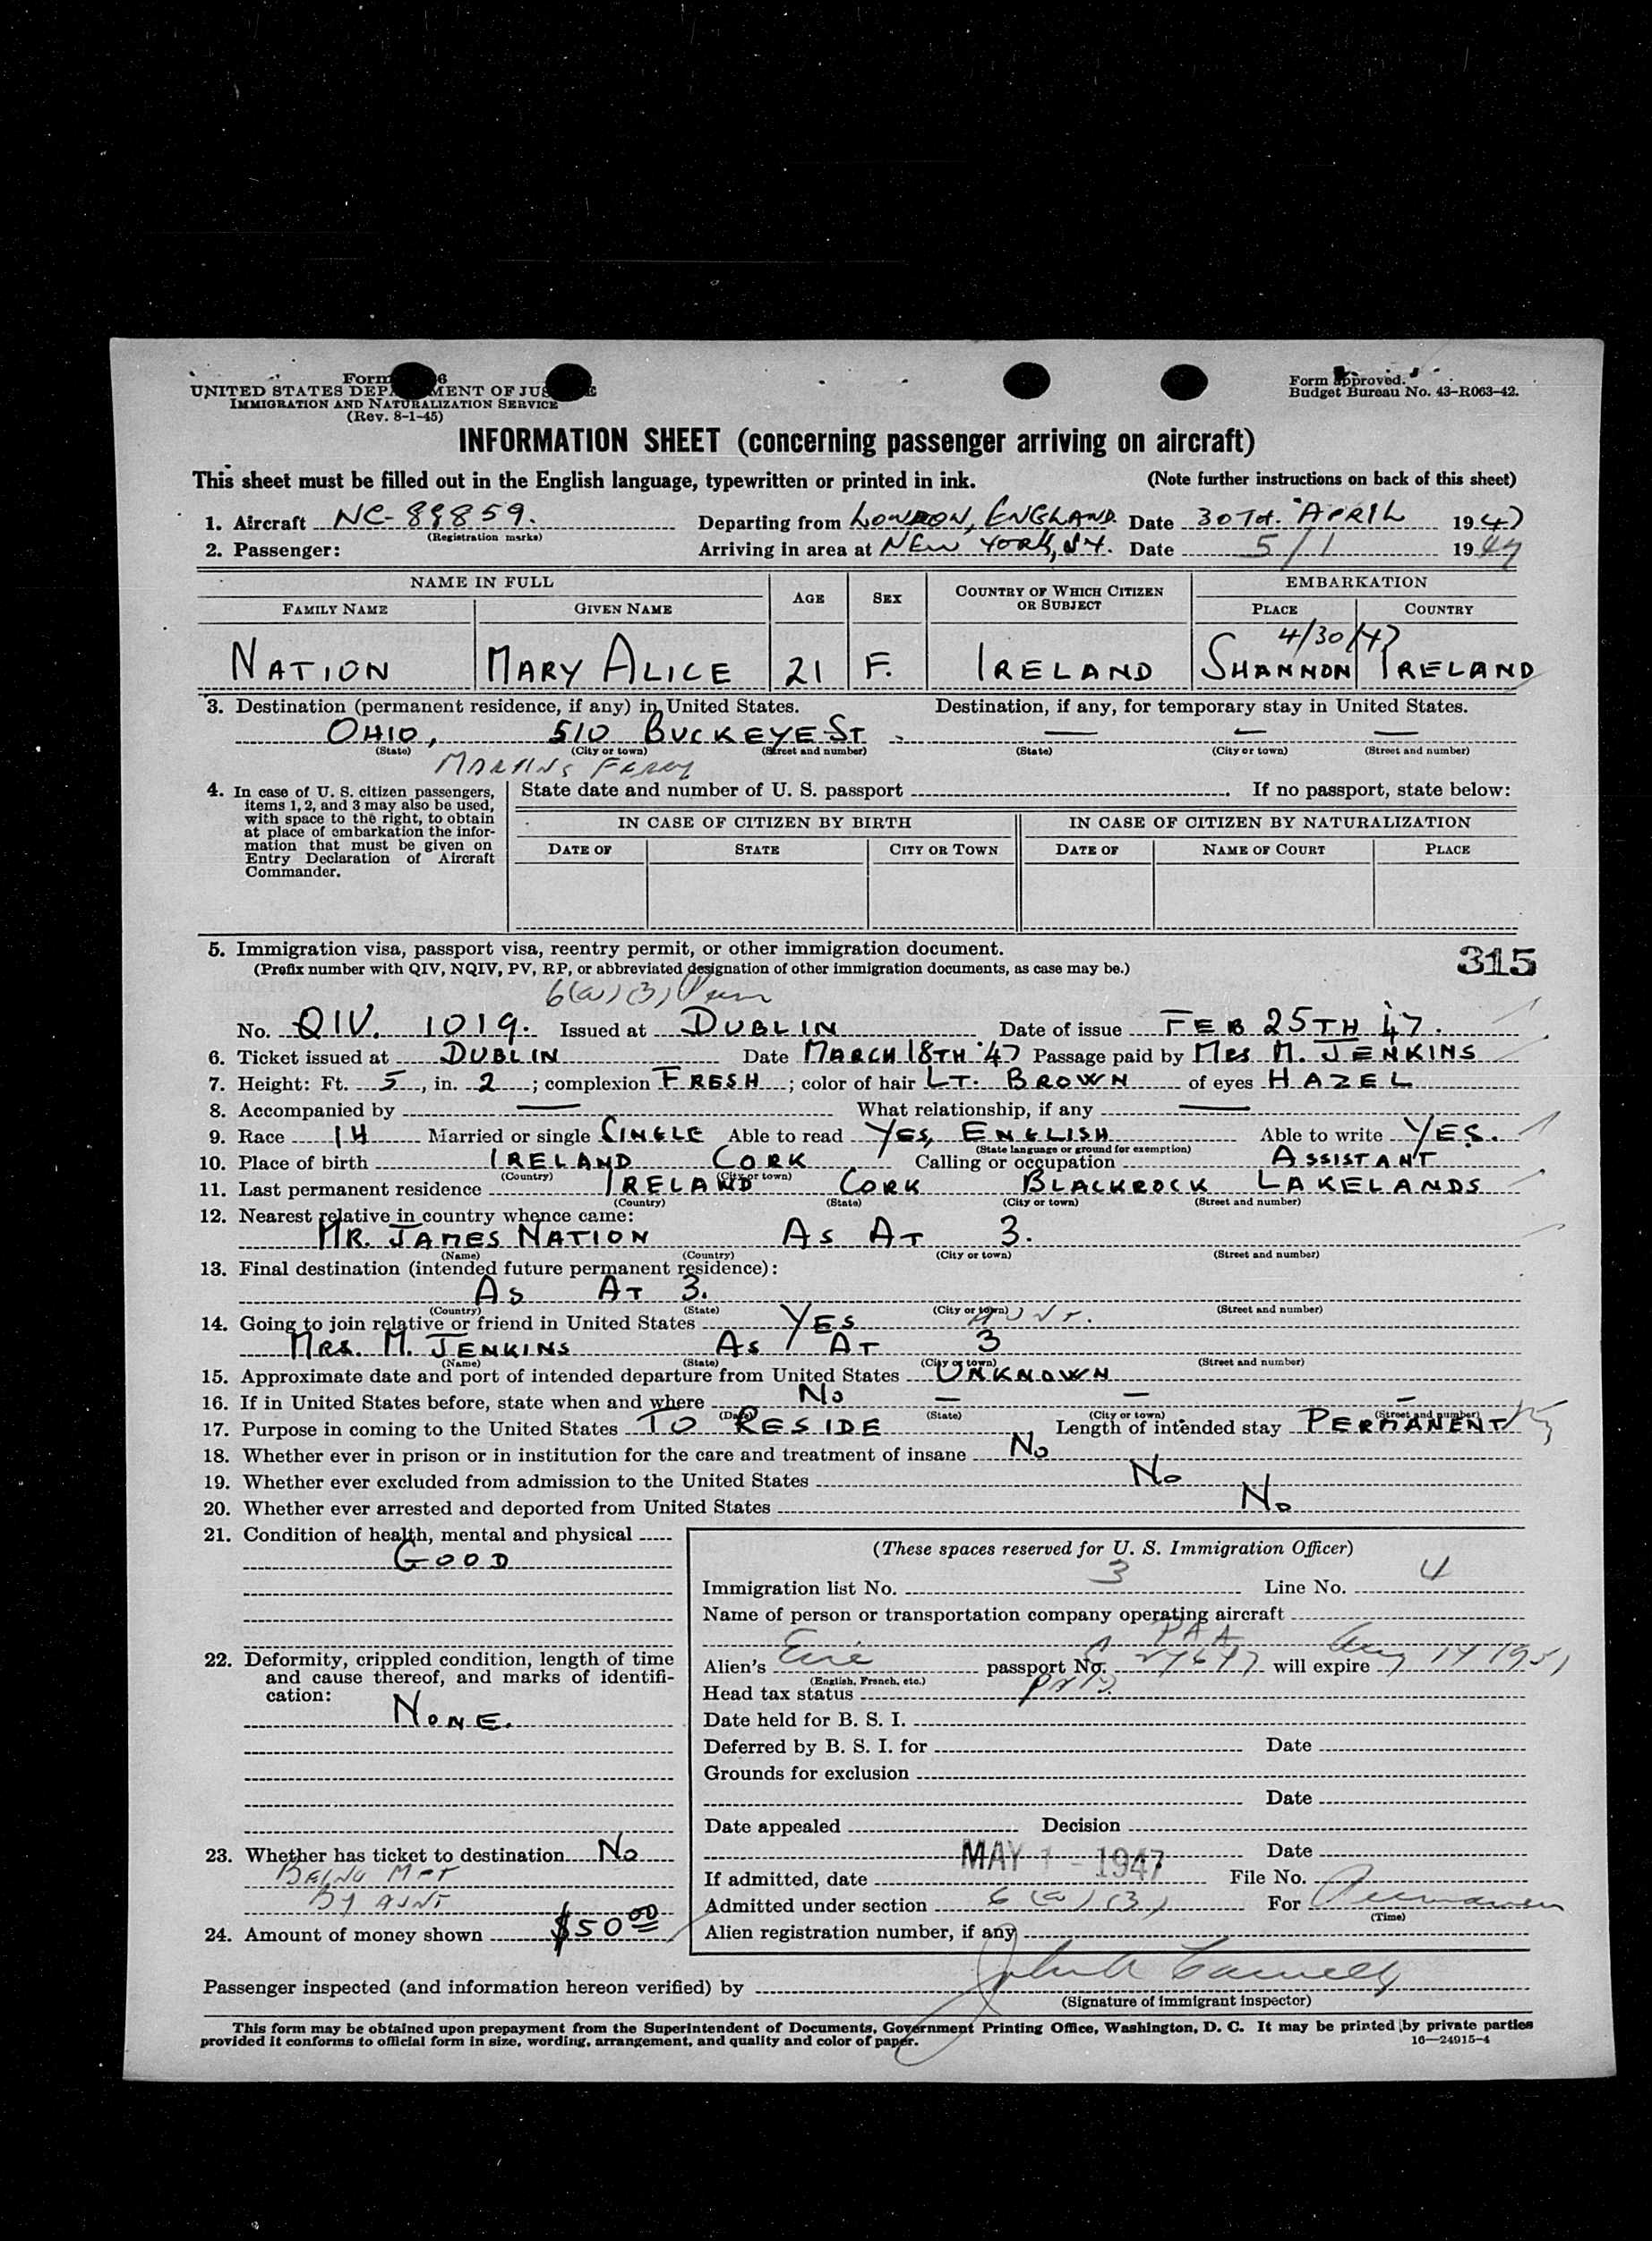 Form 6
UNITED STATES DEP MENT OF JUS E
IMMIGRATION AND NATURALIZATION SERVICE
(Rev. 8-1-45)
Form approved.
Budget Bureau No. 43-R063-42.
INFORMATION SHEET (concerning passenger arriving on aircraft)
This sheet must be filled out in the English language, typewritten or printed in ink. (Note further instructions on back of this sheet)
1. Aircraft NC-88859. Departing from LONDON, ENGLAND. Date 30TH. APRIL 1947
(Registration marks)
2. Passenger: Arriving in area at NEW YORK, N.Y. Date 5/1 1947
NAME IN FULL AGE SEX COUNTRY OF WHICH CITIZEN OR SUBJECT EMBARKATION
FAMILY NAME GIVEN NAME PLACE COUNTRY
4/30/47
NATION MARY ALICE 21 F. IRELAND SHANNON IRELAND
3. Destination (permanent residence, if any) in United States. Destination, if any, for temporary stay in United States.
OHIO, 510 BUCKEYE ST. — — —
(State) (City or town) (Street and number) (State) (City or town) (Street and number)
MARTINS FERRY
4. In case of U. S. citizen passengers, items 1, 2, and 3 may also be used, with space to the right, to obtain at place of embarkation the information that must be given on Entry Declaration of Aircraft Commander.
State date and number of U. S. passport If no passport, state below:
IN CASE OF CITIZEN BY BIRTH IN CASE OF CITIZEN BY NATURALIZATION
DATE OF STATE CITY OR TOWN DATE OF NAME OF COURT PLACE
5. Immigration visa, passport visa, reentry permit, or other immigration document.
315
(Prefix number with QIV, NQIV, PV, RP, or abbreviated designation of other immigration documents, as case may be.)
6(a)(3) Perm
No. QIV. 1019. Issued at DUBLIN Date of issue FEB 25TH 47.
6. Ticket issued at DUBLIN Date MARCH 18TH '47 Passage paid by MRS M. JENKINS
7. Height: Ft. 5, in. 2; complexion FRESH; color of hair LT. BROWN of eyes HAZEL
8. Accompanied by — What relationship, if any —
9. Race 14 Married or single SINGLE Able to read YES, ENGLISH Able to write YES.
(State language or ground for exemption)
10. Place of birth IRELAND CORK Calling or occupation ASSISTANT
(Country) (City or town)
11. Last permanent residence IRELAND CORK BLACKROCK LAKELANDS
(Country) (State) (City or town) (Street and number)
12. Nearest relative in country whence came:
MR. JAMES NATION AS AT 3.
(Name) (Country) (City or town) (Street and number)
13. Final destination (intended future permanent residence):
AS AT 3.
(Country) (State) (City or town) (Street and number)
14. Going to join relative or friend in United States YES AUNT.
MRS. M. JENKINS AS AT 3
(Name) (State) (City or town) (Street and number)
15. Approximate date and port of intended departure from United States UNKNOWN
16. If in United States before, state when and where No — — —
(Date) (State) (City or town) (Street and number)
17. Purpose in coming to the United States TO RESIDE Length of intended stay PERMANENT
18. Whether ever in prison or in institution for the care and treatment of insane No
19. Whether ever excluded from admission to the United States No
20. Whether ever arrested and deported from United States No
21. Condition of health, mental and physical
GOOD
22. Deformity, crippled condition, length of time and cause thereof, and marks of identification:
NONE.
23. Whether has ticket to destination No
BEING MET
BY AUNT
24. Amount of money shown $50 00
(These spaces reserved for U. S. Immigration Officer)
Immigration list No. 3 Line No. 4
Name of person or transportation company operating aircraft
PAA
Alien's Eire passport No. 27647 will expire Aug 14 1951
(English, French, etc.)
Head tax status
Date held for B. S. I.
Deferred by B. S. I. for Date
Grounds for exclusion
Date
Date appealed Decision
Date
If admitted, date MAY 1 - 1947 File No.
Admitted under section 6(a)(3) For Permanen
(Time)
Alien registration number, if any
Passenger inspected (and information hereon verified) by
(Signature of immigrant inspector)
This form may be obtained upon prepayment from the Superintendent of Documents, Government Printing Office, Washington, D. C. It may be printed by private parties
provided it conforms to official form in size, wording, arrangement, and quality and color of paper. 16—24915-4